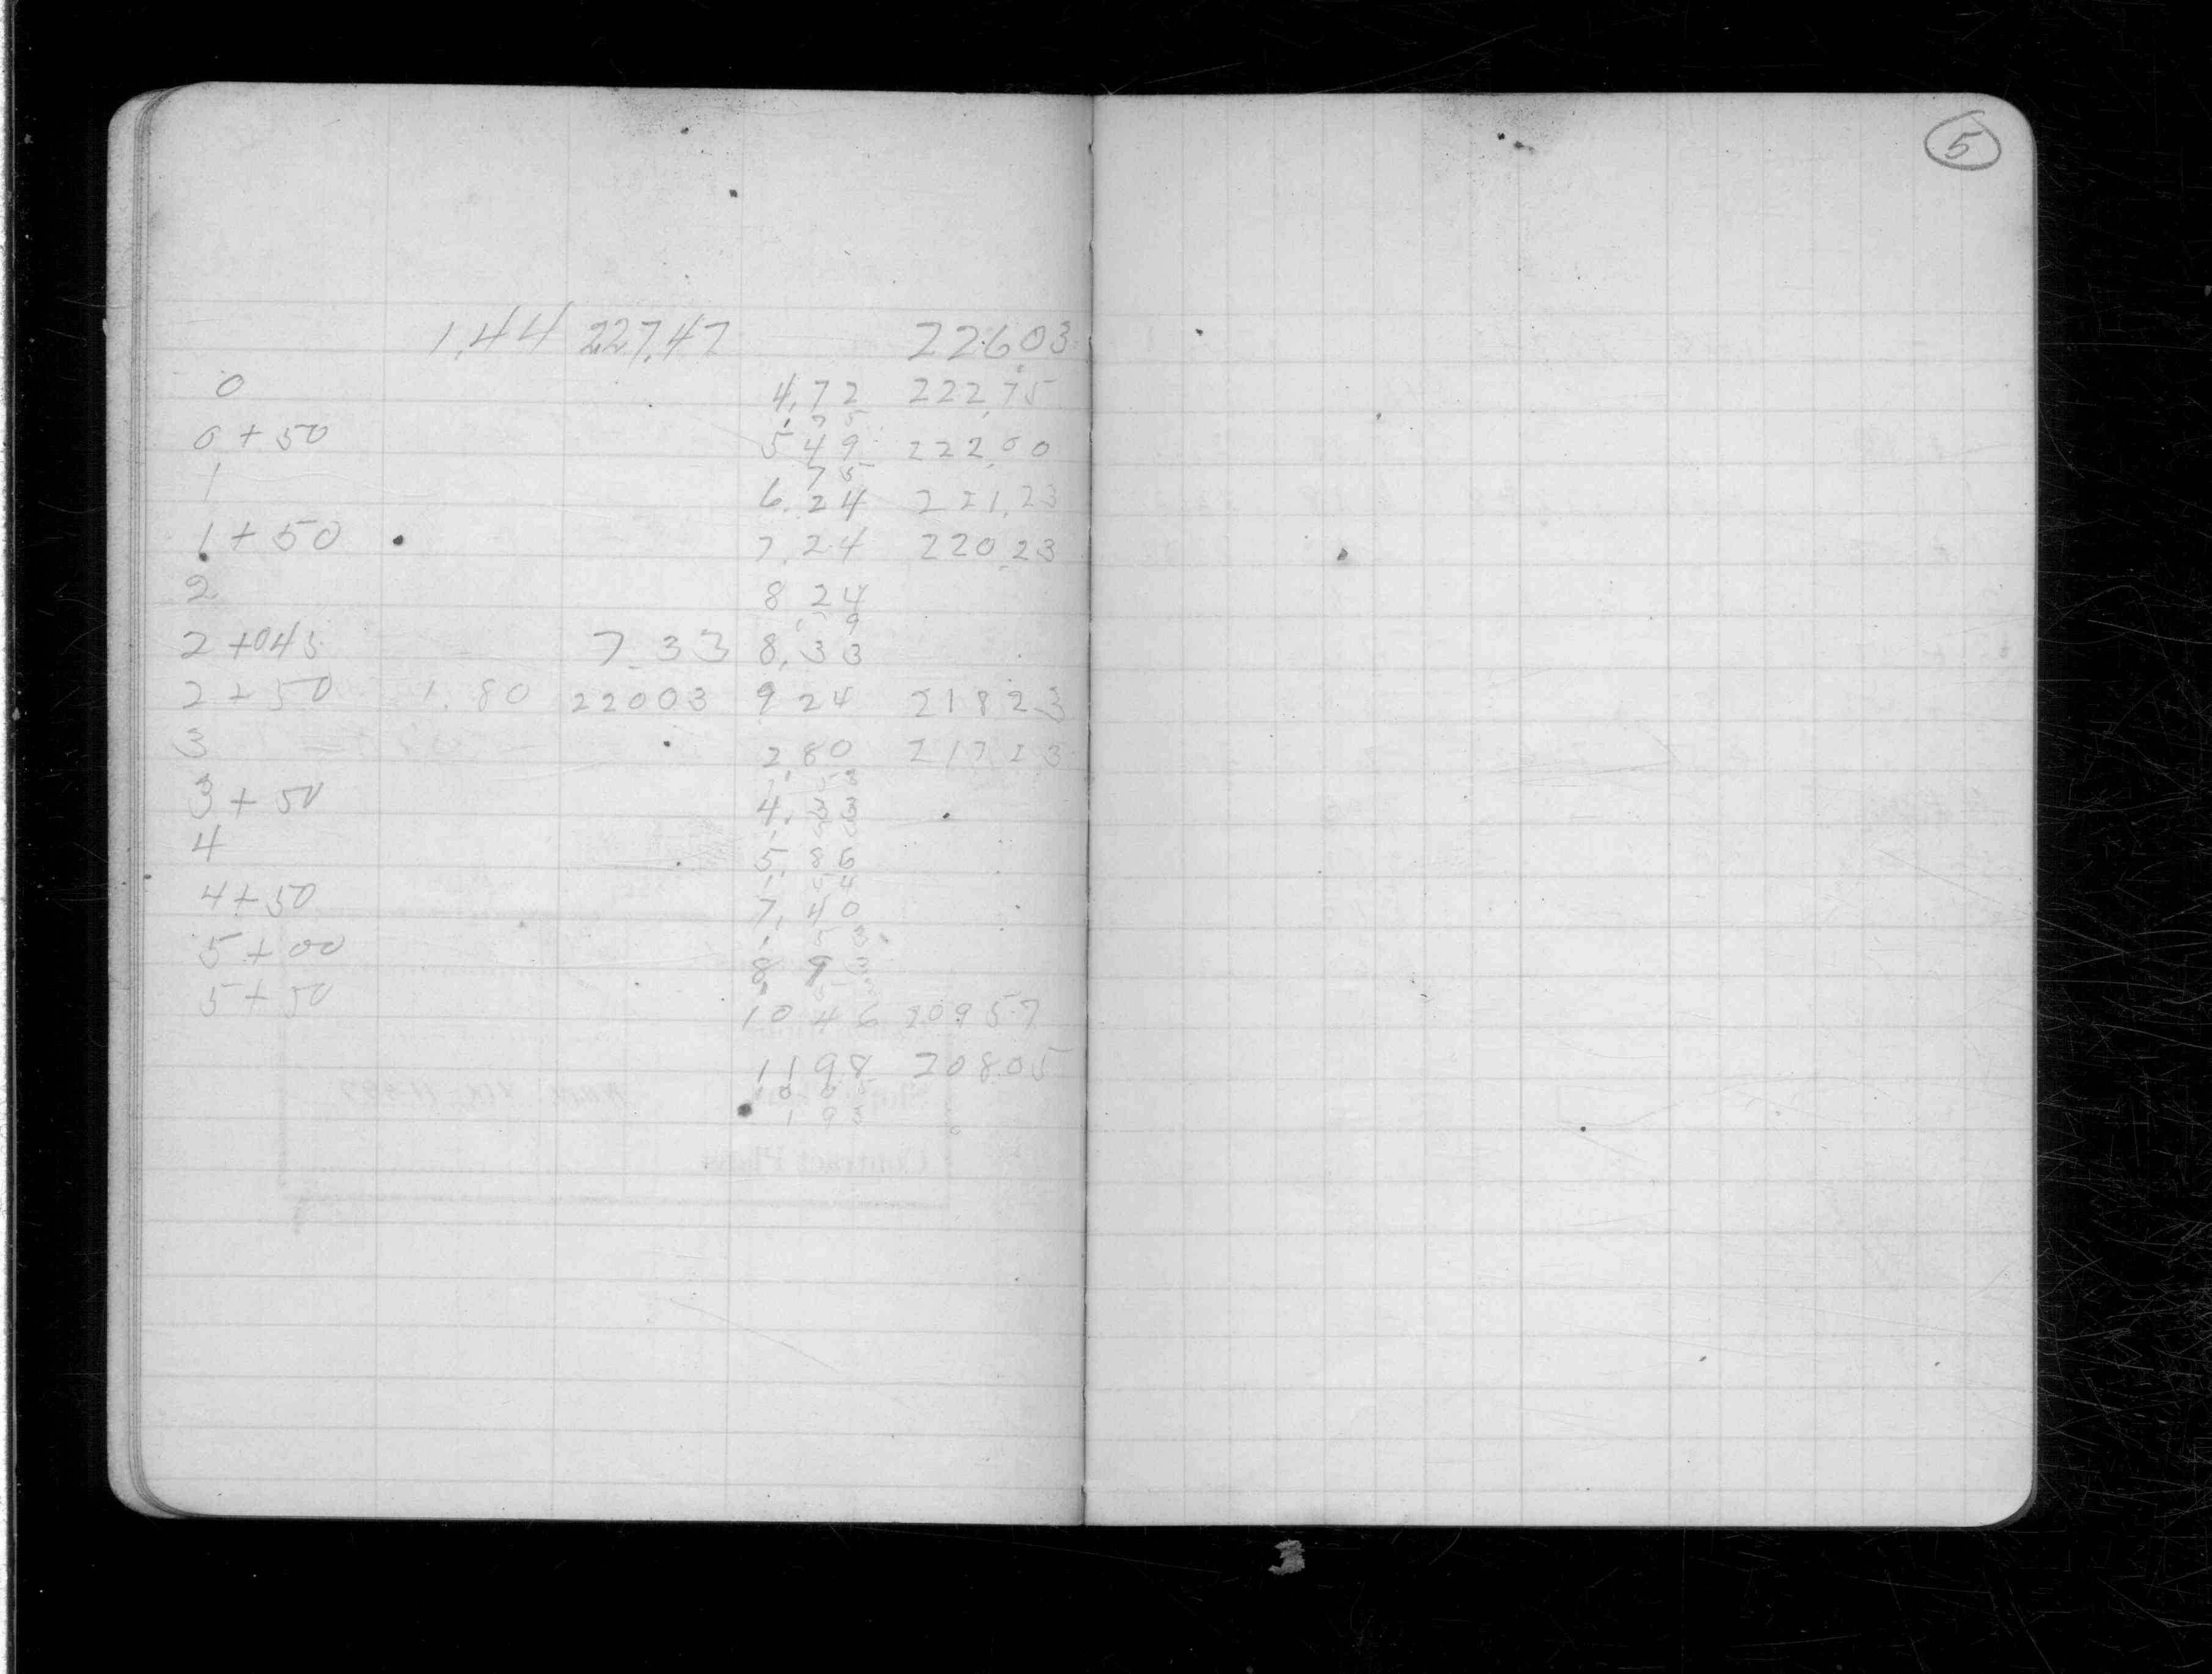 5
1.44 227.47 226.03
0 4.72 222.75
.75
0+50 5 49 222.00
75
1 6.24 221.23
1+50 7.24 220.23
2 8 24
9
2+045 7.33 8.33
2+50 1.80 22003 9 24 21823
3 2.80 21723
1.53
3+50 4.33
4 5.86
1.54
4+50 7.40
1.53
5+00 8 93
5+50 10 46 20957
1198 20805